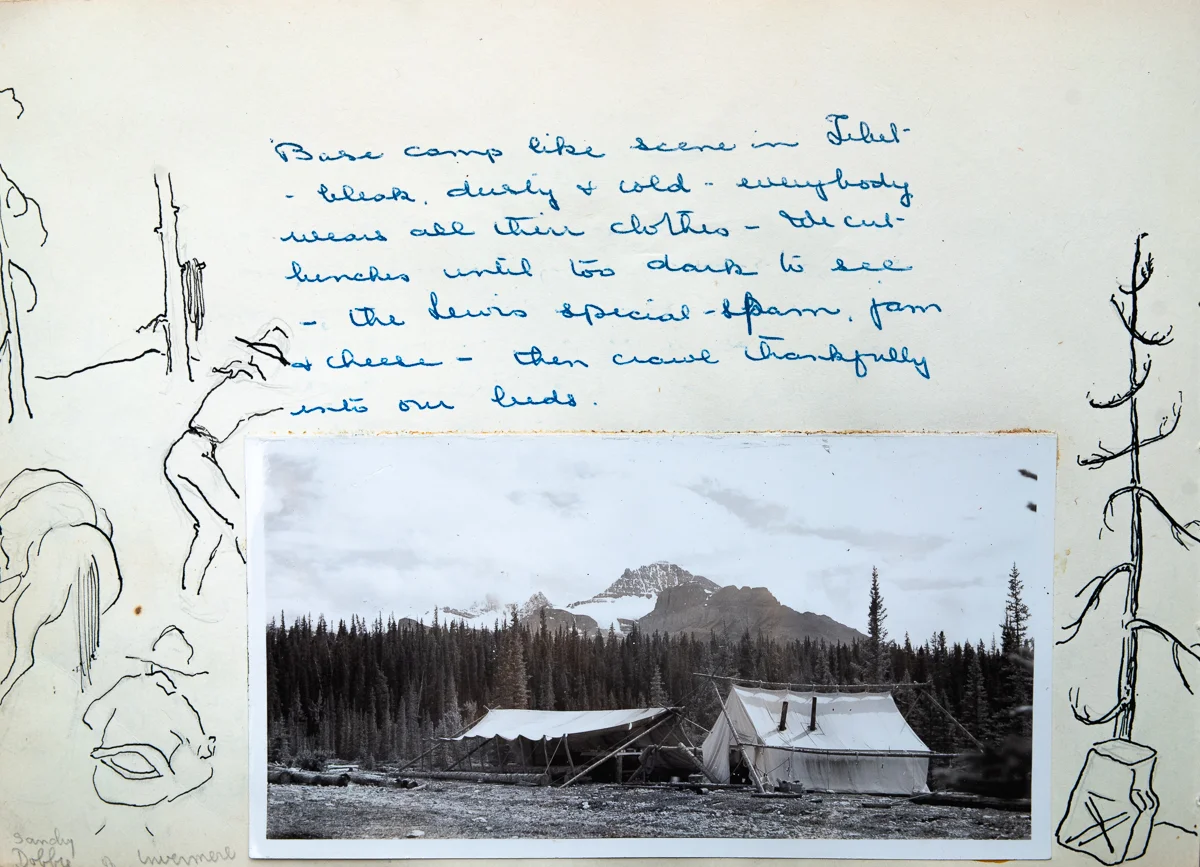 Base camp like scene in Tibet
- bleak, dusty & cold - everybody
wears all their clothes - We cut
lunches until too dark to see
- the Lewis special - spam, jam
& cheese - then crawl thankfully
into our beds.
Sandy
Dobbie of Invermere